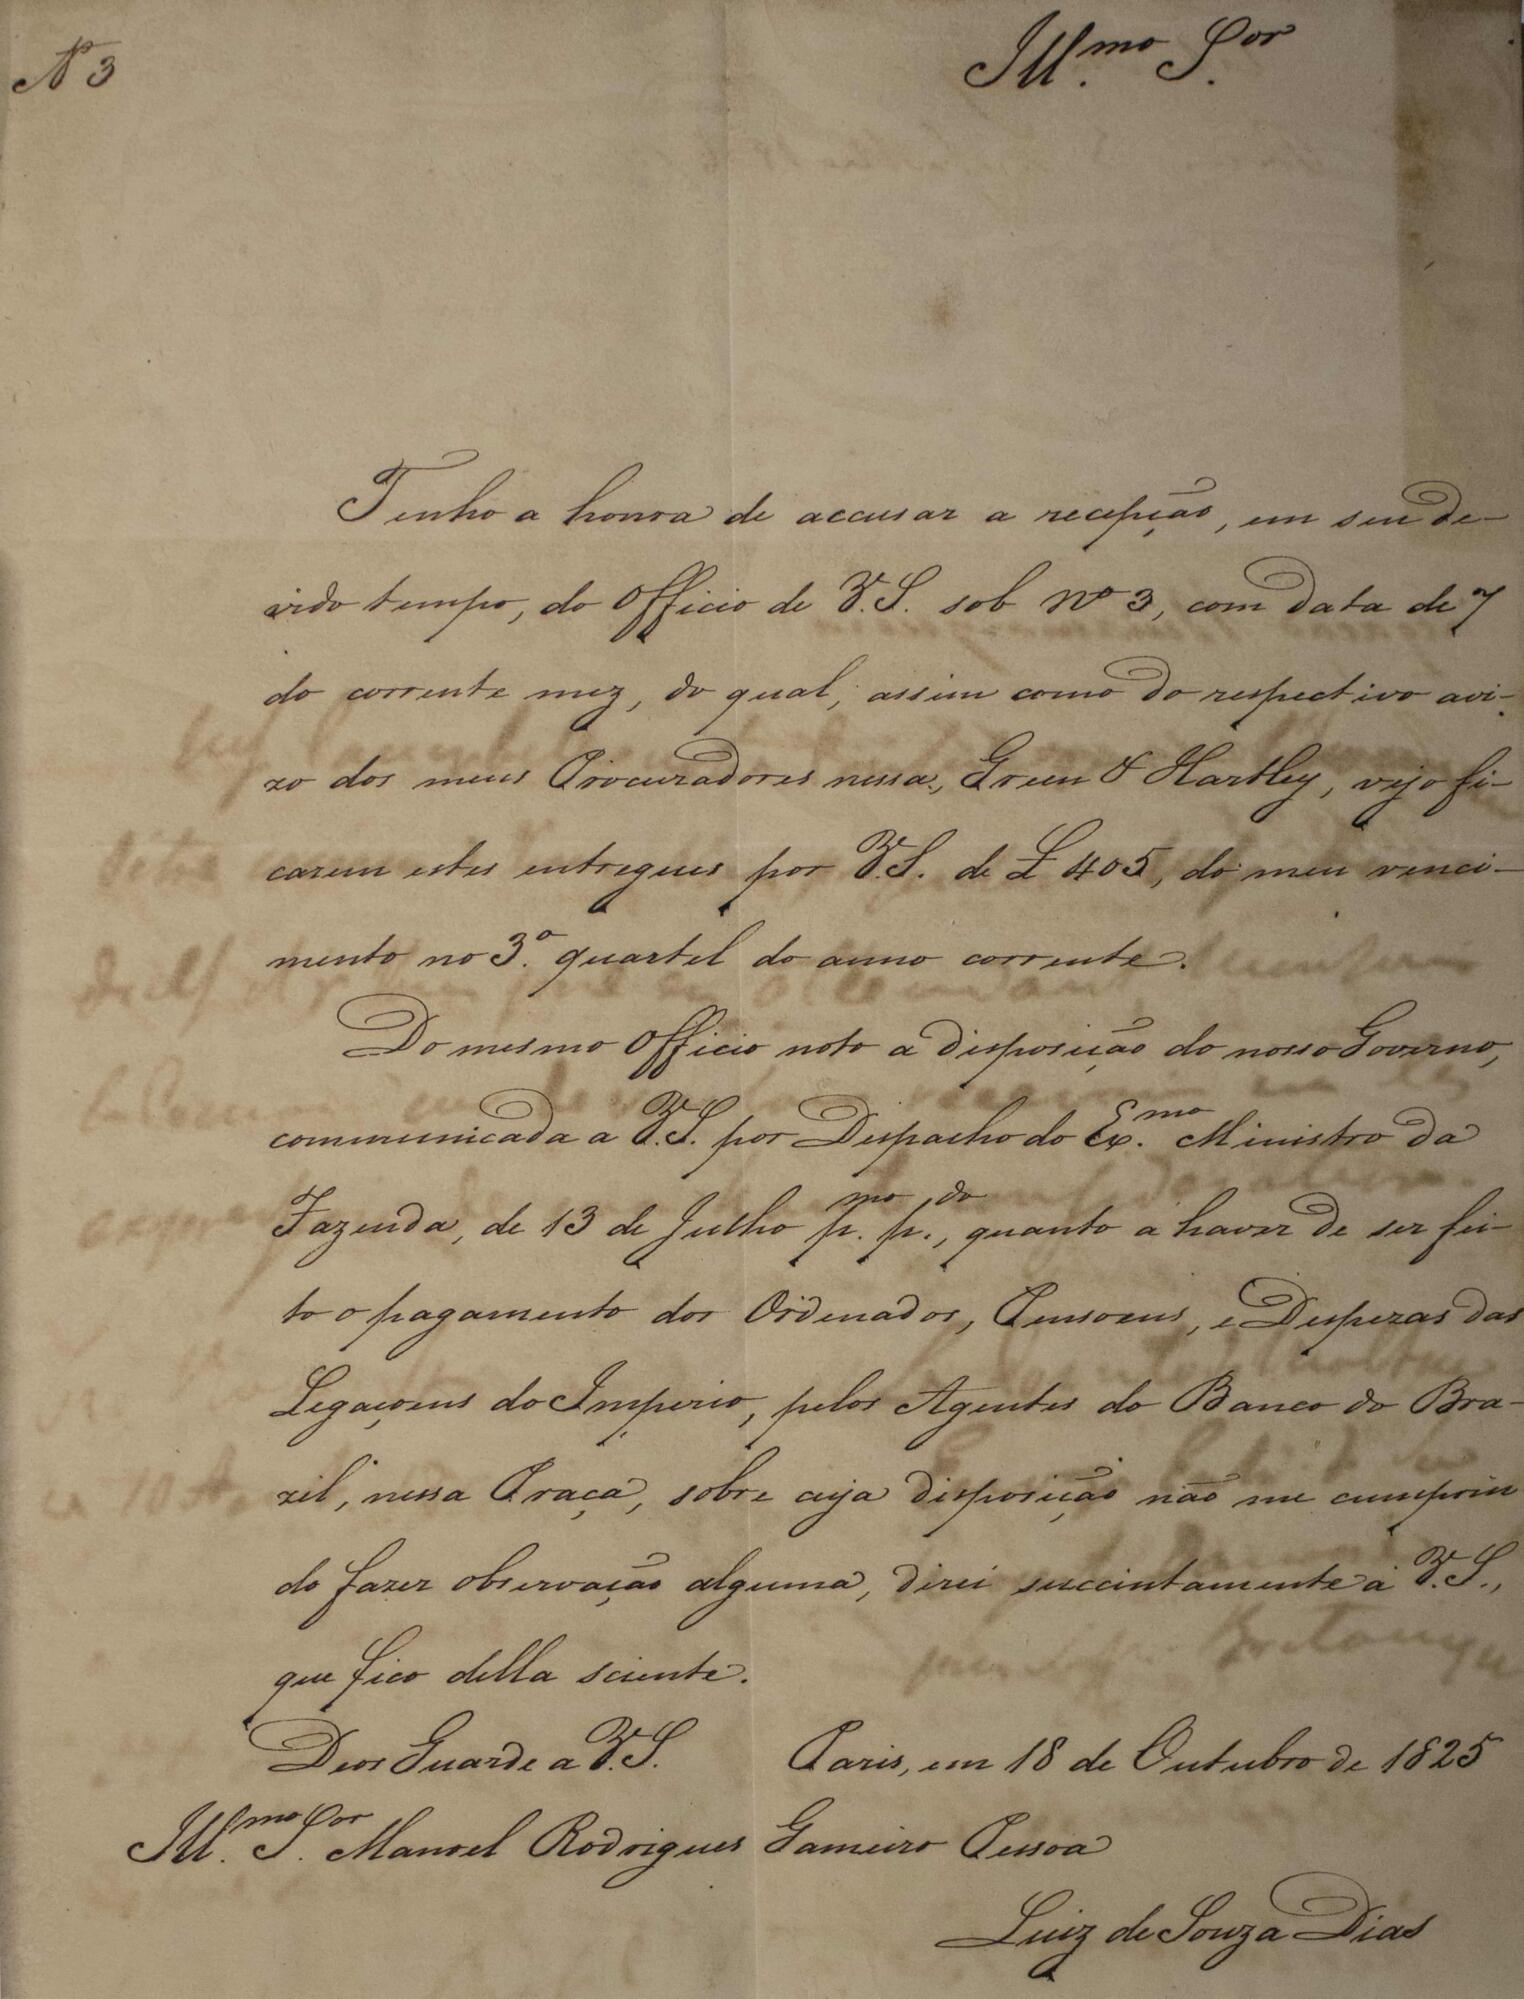 N 3
Ill.mo S.or
Tenho a honra de accusar a recepção, em seu de-
vido tempo, do Officio de V.S. sob Nº 3, com data de 7
do corrente mez, do qual, assim como do respectivo avi-
zo dos meus Procuradores nessa, Green & Hartley, vejo fi-
carem estes entregues por V.S. de £ 405, do meu venci-
mento no 3.º quartel do anno corrente.
Do mesmo Officio noto a disposição do nosso Governo,
communicada a V.S. por Despacho do Ex.mo Ministro da
Fazenda, de 13 de Julho p.mo p.do, quanto a haver de ser fei-
to o pagamento dos Ordenados, Pensoens, e Despezas das
Legaçoens do Imperio, pelos Agentes do Banco do Bra-
zil, nessa Praça, sobre cuja disposição não me cumprin
do fazer observação alguma, direi succintamente á V.S.,
que fico della sciente.
Deos Guarde a V.S. Paris, em 18 de Outubro de 1825
Ill.mo S.or Manoel Rodrigues Gameiro Pessoa
Luiz de Souza Dias